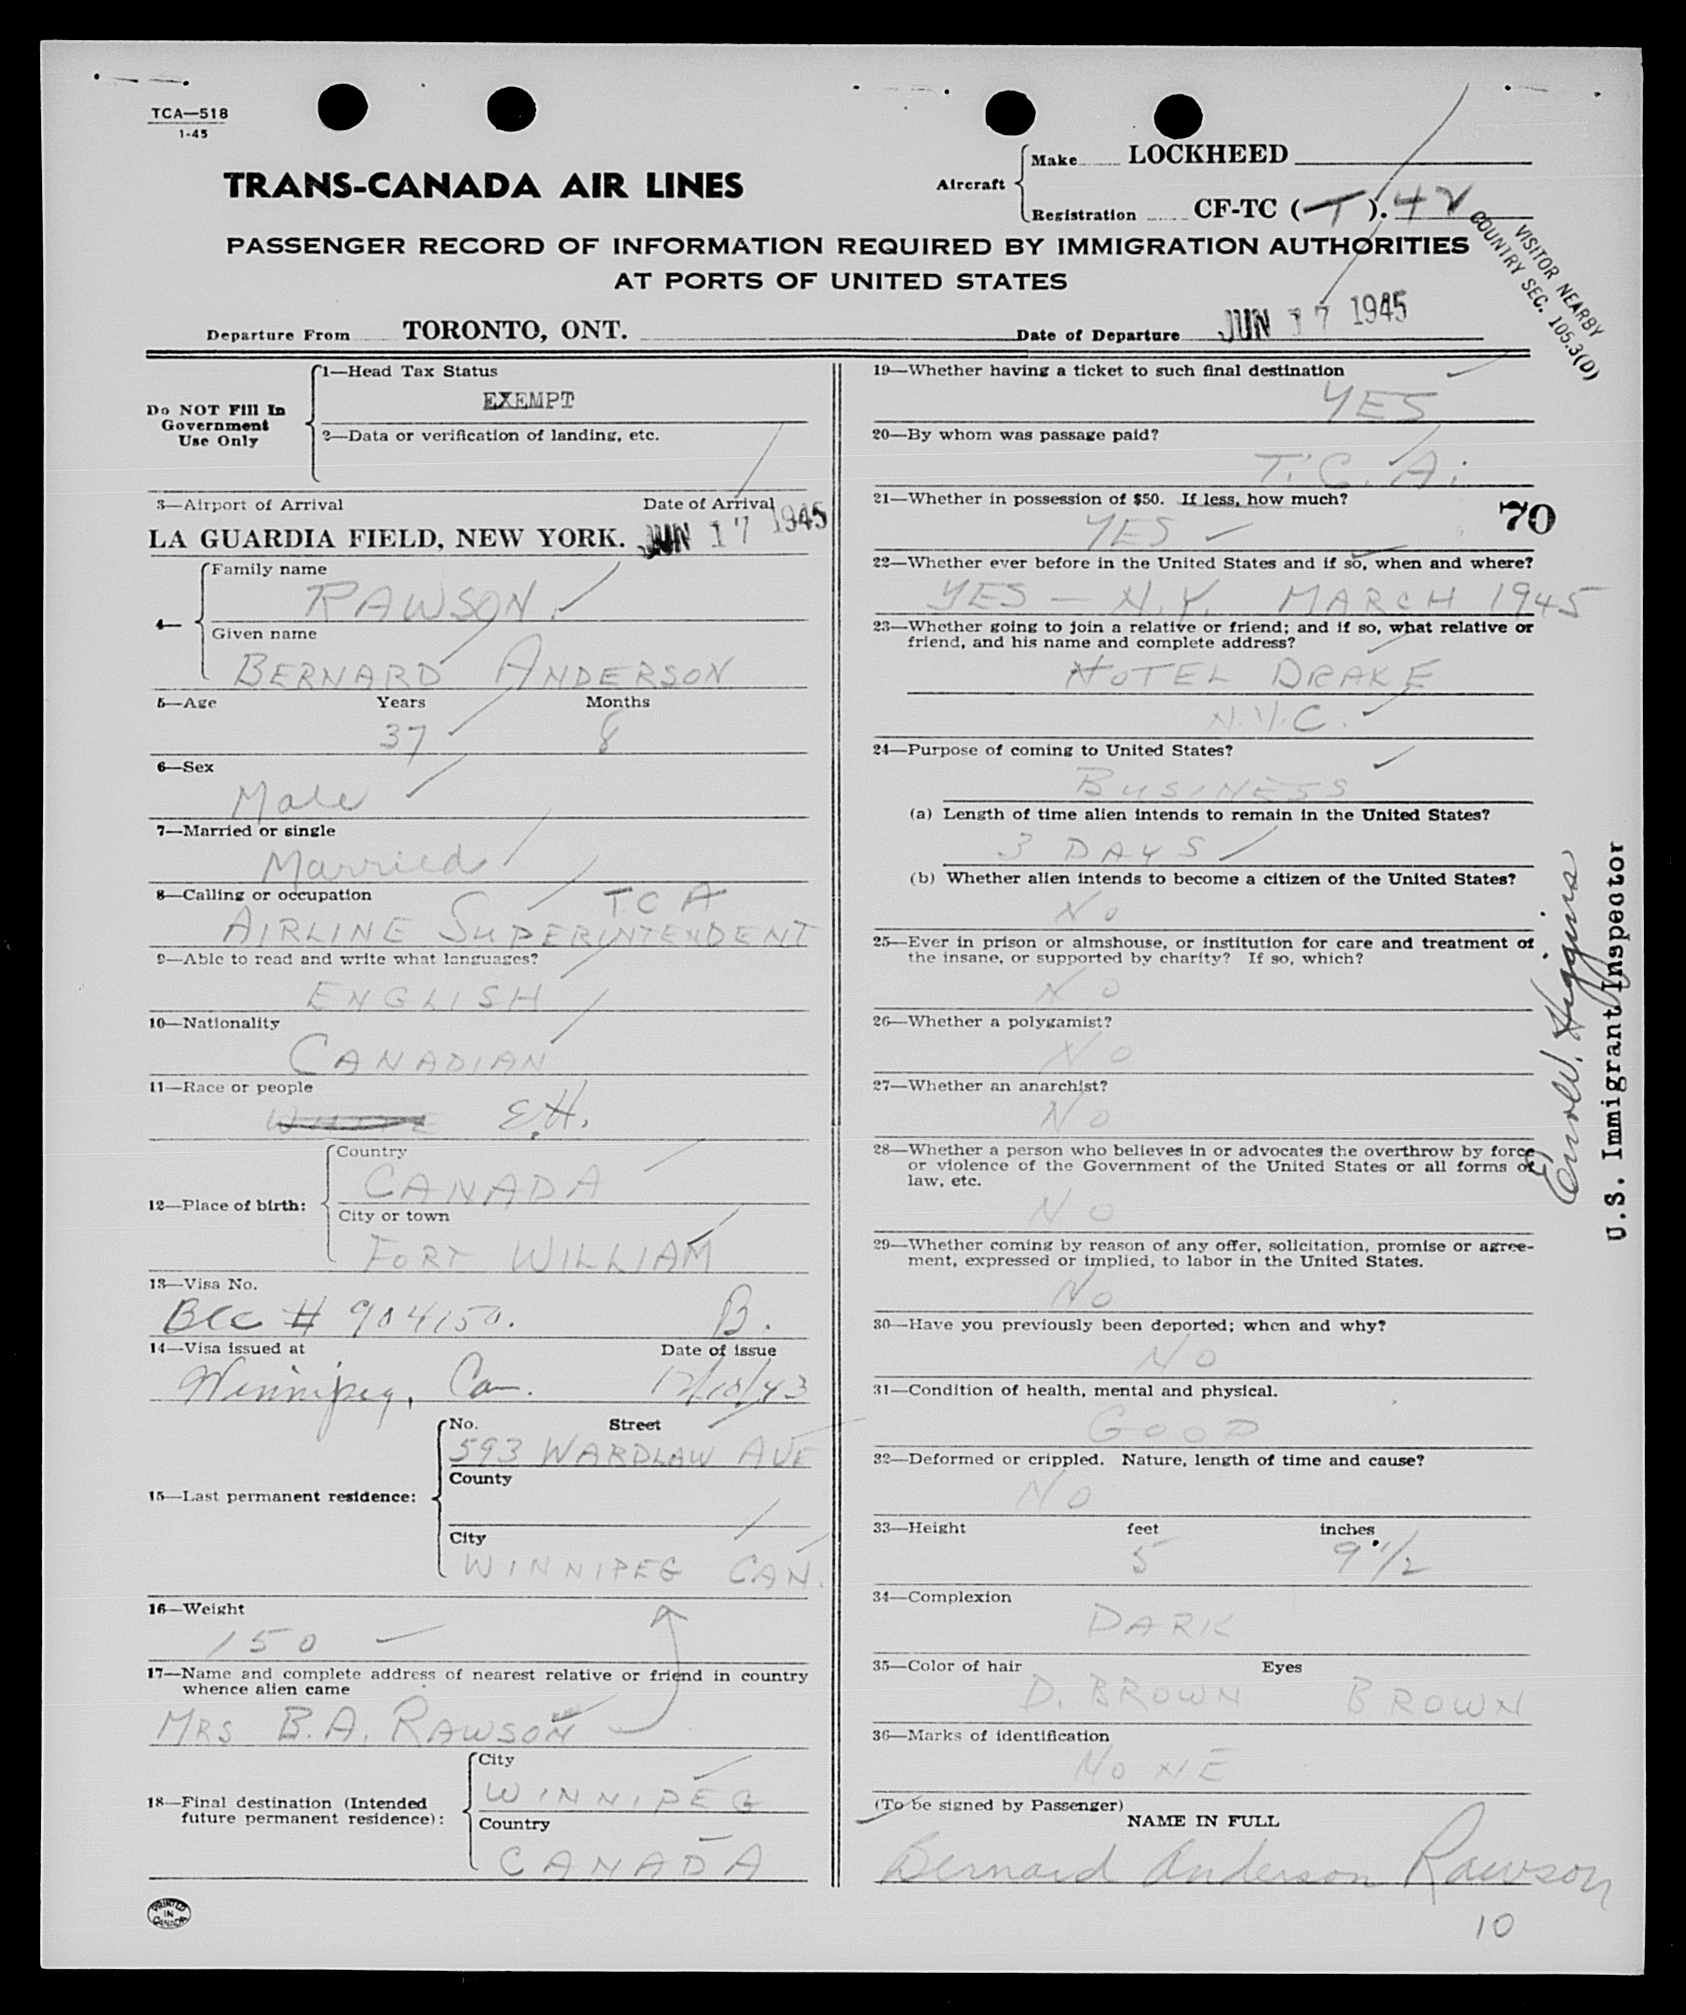 TCA—518
1-45
TRANS-CANADA AIR LINES
Aircraft
Make LOCKHEED
Registration CF-TC (T). 42
PASSENGER RECORD OF INFORMATION REQUIRED BY IMMIGRATION AUTHORITIES
AT PORTS OF UNITED STATES
VISITOR NEARBY
COUNTRY SEC. 105.3(D)
Departure From TORONTO, ONT. Date of Departure JUN 17 1945
Do NOT Fill In
Government
Use Only
1—Head Tax Status
EXEMPT
2—Data or verification of landing, etc.
3—Airport of Arrival Date of Arrival
LA GUARDIA FIELD, NEW YORK. JUN 17 1945
4—
Family name
RAWSON.
Given name
BERNARD ANDERSON
5—Age Years Months
37 8
6—Sex
Male
7—Married or single
Married
8—Calling or occupation
TCA
AIRLINE SUPERINTENDENT
9—Able to read and write what languages?
ENGLISH
10—Nationality
CANADIAN
11—Race or people
WHITE E.H.
12—Place of birth:
Country
CANADA
City or town
FORT WILLIAM
13—Visa No.
BCC # 904150. B.
14—Visa issued at Date of issue
Winnipeg, Can. 12/10/43
15—Last permanent residence:
No. Street
593 WARDLAW AVE
County
City
WINNIPEG CAN.
16—Weight
150
17—Name and complete address of nearest relative or friend in country
whence alien came
MRS B.A. RAWSON
18—Final destination (Intended
future permanent residence):
City
WINNIPEG
Country
CANADA
PRINTED
IN
CANADA
19—Whether having a ticket to such final destination
YES
20—By whom was passage paid?
T.C.A.
21—Whether in possession of $50. If less, how much?
YES
70
22—Whether ever before in the United States and if so, when and where?
YES — N.Y. MARCH 1945
23—Whether going to join a relative or friend; and if so, what relative or
friend, and his name and complete address?
HOTEL DRAKE
N.Y.C.
24—Purpose of coming to United States?
BUSINESS
(a) Length of time alien intends to remain in the United States?
3 DAYS
(b) Whether alien intends to become a citizen of the United States?
NO
25—Ever in prison or almshouse, or institution for care and treatment of
the insane, or supported by charity? If so, which?
NO
26—Whether a polygamist?
NO
27—Whether an anarchist?
NO
28—Whether a person who believes in or advocates the overthrow by force
or violence of the Government of the United States or all forms of
law, etc.
NO
29—Whether coming by reason of any offer, solicitation, promise or agree-
ment, expressed or implied, to labor in the United States.
NO
30—Have you previously been deported; when and why?
NO
31—Condition of health, mental and physical.
GOOD
32—Deformed or crippled. Nature, length of time and cause?
NO
33—Height feet inches
5 9 1/2
34—Complexion
DARK
35—Color of hair Eyes
D. BROWN BROWN
36—Marks of identification
NONE
(To be signed by Passenger)
NAME IN FULL
Bernard Anderson Rawson
10
Higgins
U.S. Immigrant Inspector